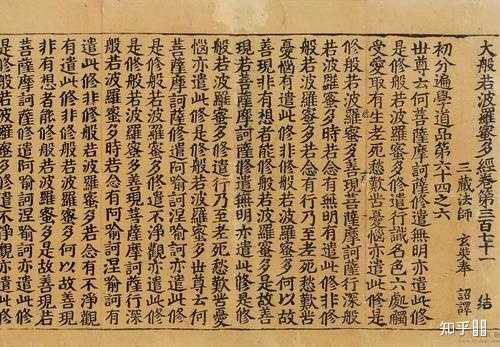 大般若波羅蜜多經卷第三百七十一 結
三藏法師 玄奘奉 詔譯
初分遍學道品第六十四之六
世尊云何菩薩摩訶薩修遣無明亦遣此修
是修般若波羅蜜多修遣行識名色六處觸
受愛取有生老死愁歎苦憂惱亦遣此修是
修般若波羅蜜多善現菩薩摩訶薩行深般
若波羅蜜多時若念有行乃至老死愁歎苦
憂惱有遣此修非修般若波羅蜜多是故
善現非有想者能修般若波羅蜜多是故善
現菩薩摩訶薩修遣無明亦遣此修是修
般若波羅蜜多修遣行乃至老死愁歎苦憂
惱亦遣此修是修般若波羅蜜多世尊云何
菩薩摩訶薩修遣阿喻訶涅喻訶亦遣此修
是修般若波羅蜜多修遣不淨觀亦遣此修
是修般若波羅蜜多善現菩薩摩訶薩行深
般若波羅蜜多時若念有阿喻訶涅喻訶有
遣此修非修般若波羅蜜多若念有不淨觀
有遣此修非修般若波羅蜜多是故善現
非有想者能修般若波羅蜜多是故善現
菩薩摩訶薩修遣阿喻訶涅喻訶亦遣此修
是修般若波羅蜜多修遣不淨觀亦
知乎